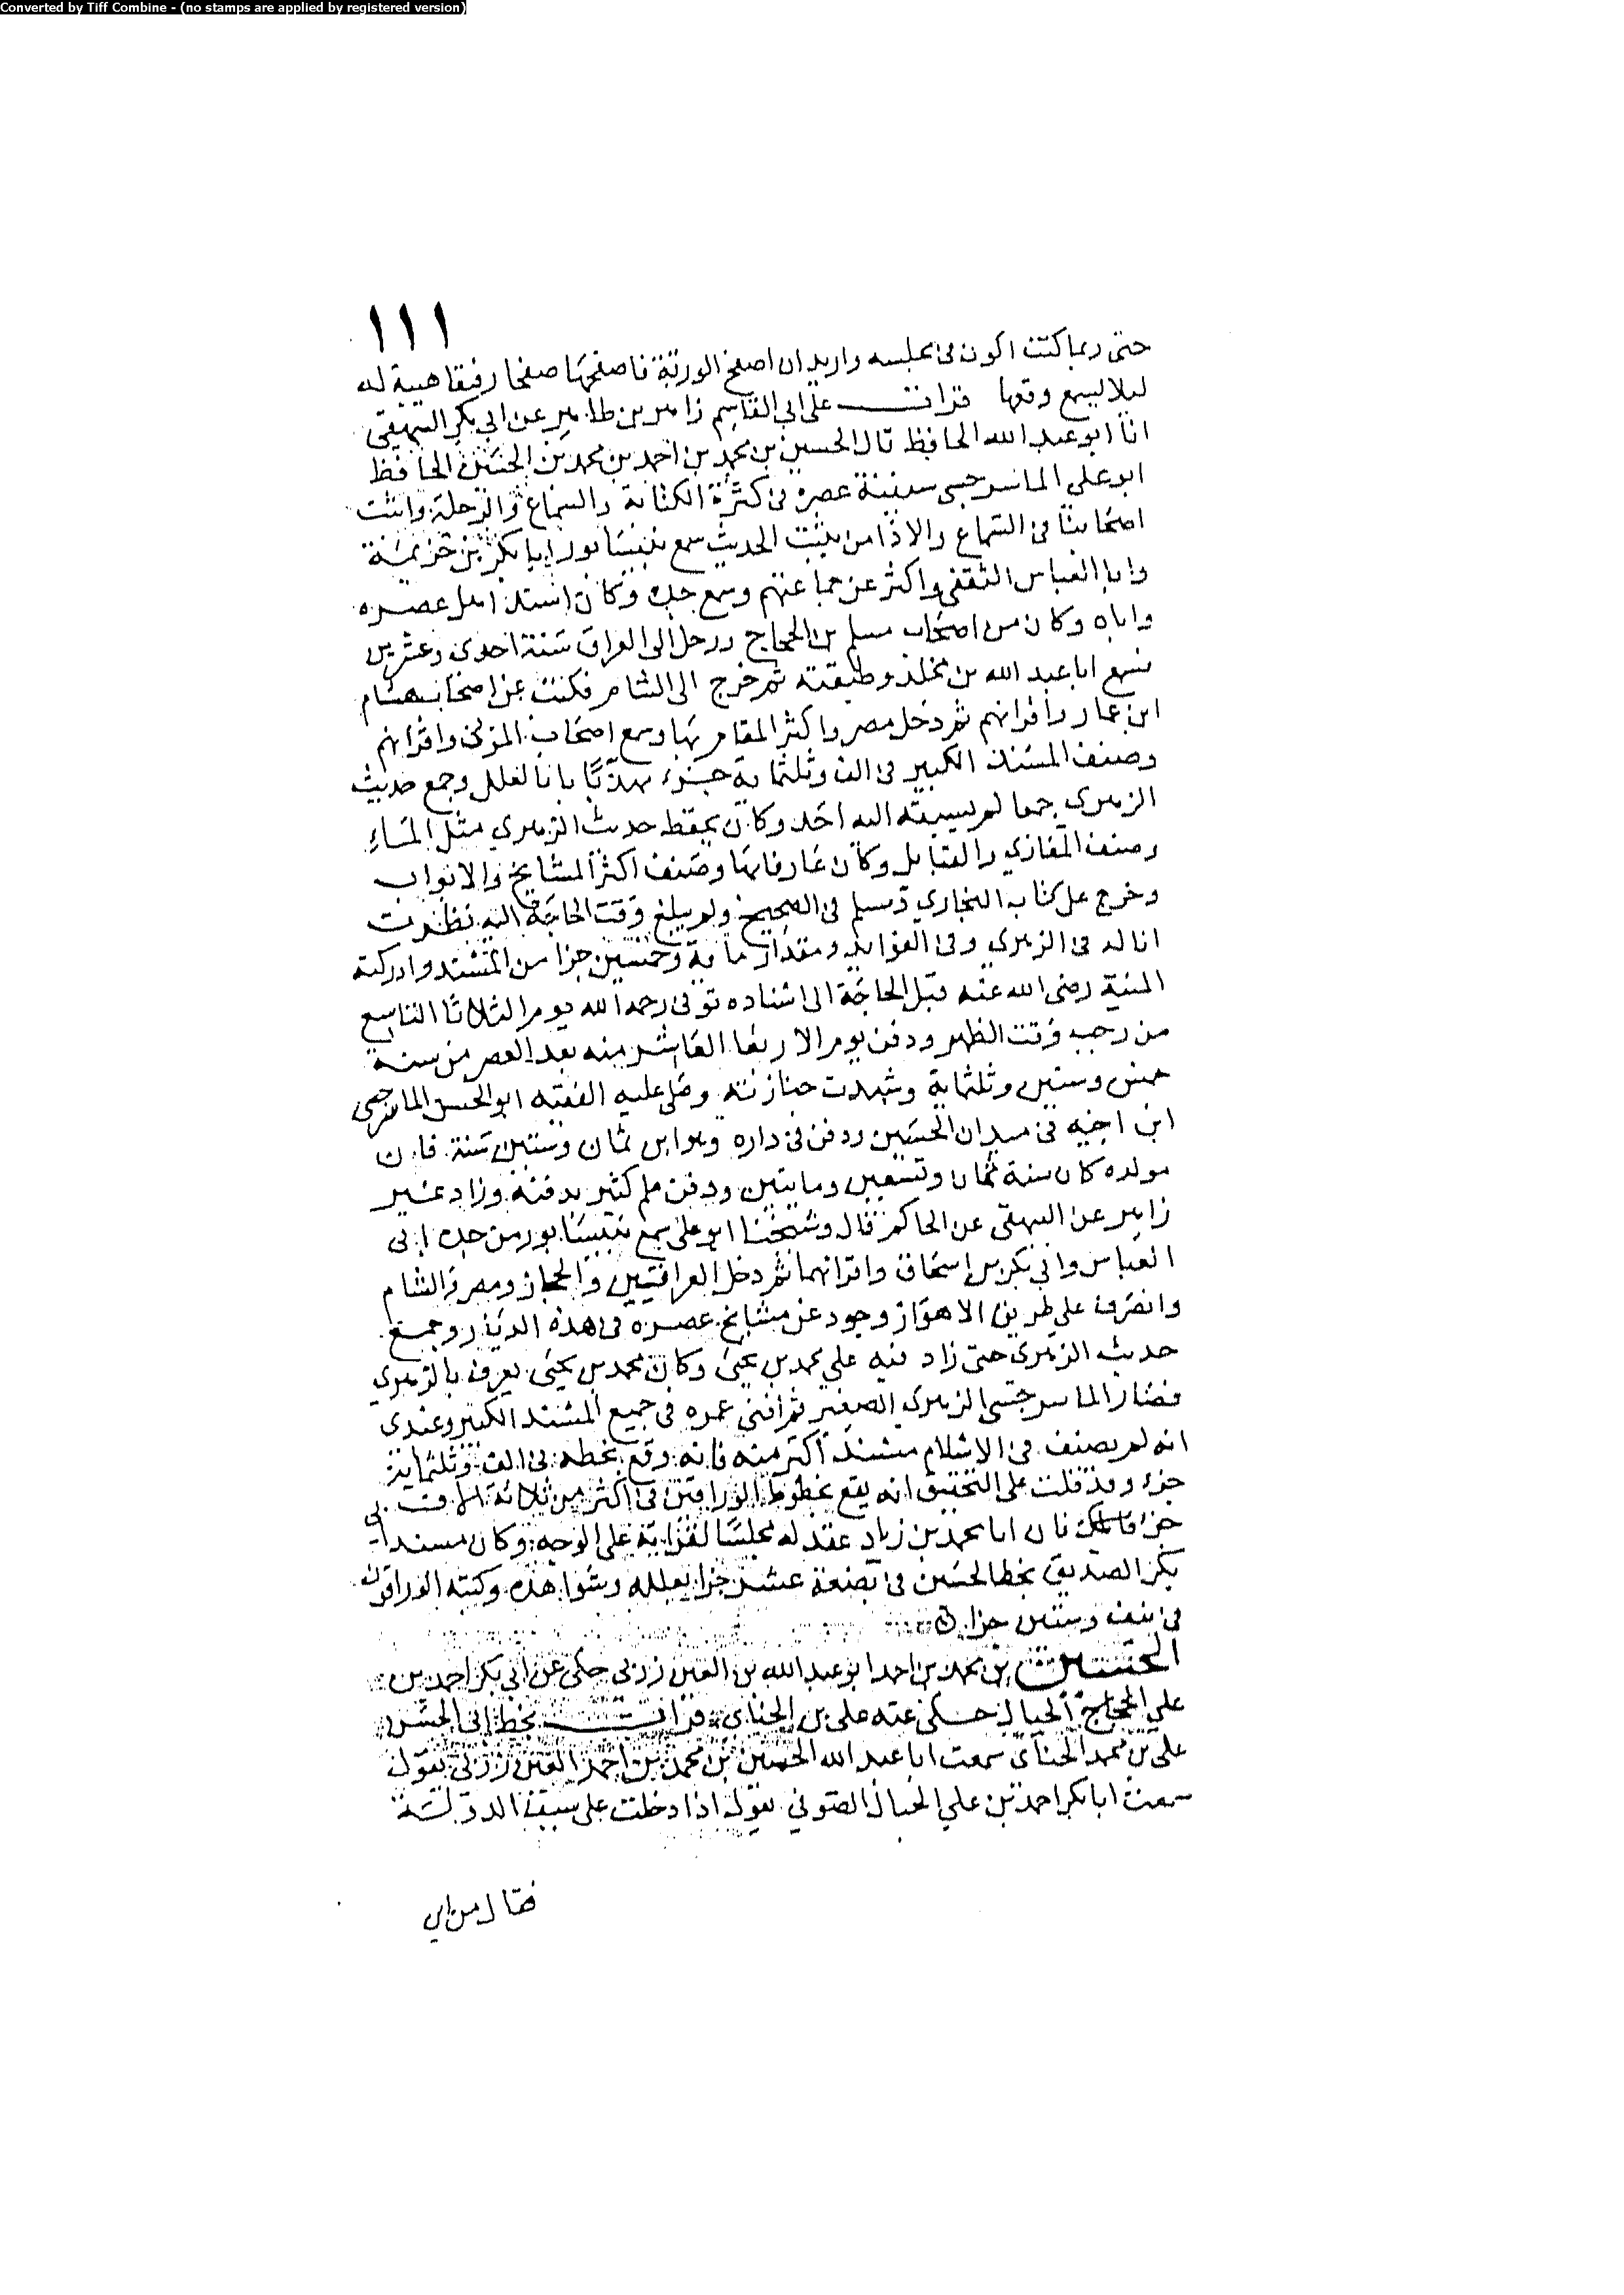 Converted by Tiff Combine - (no stamps are applied by registered version)
١١١
حتى ربما كنت اكون فى مجلسه واريد ان اصفح الورقة فاصفحها صفحا رفيقا هيبة له
ليلا ليسمع وقعها قرات على ابى القاسم زاهر بن طاهر عن ابي بكر البيهقى
انا ابو عبد الله الحافظ قال الحسين بن محمد بن احمد بن محمد بن الحسين الحافظ
ابو على الماسرجسى سفينة عصره فى كثرة الكتابة والسماع والرحلة واثبت
اصحابنا فى السماع والاذا من بيت الحديث سمع بنيسابور ابا بكر بن خزيمة
وابا العباس الثقفى واكثر عن جماعتهم وسمع جده وكان اسند اهل عصره
واباه وكان من اصحاب مسلم بن الحجاج ورحل الى العراق سنة احدى وعشرين
فسمع ابا عبد الله بن مخلد وطبقته ثم خرج الى الشام فكتب عن اصحاب هشام
ابن عمار واقرانهم ثم دخل مصر واكثر المقام بها وسمع اصحاب المزنى واقرانهم
وصنف المسند الكبير فى الف وثلثماية جزء مهذبا بالعلل وجمع حديث
الزهرى جمعا لم يسبقه اليه احد وكان يحفظ حديث الزهري مثل الماء
وصنف المغازي والقبايل وكان عارفا بها وصنف اكثر المشايخ والابواب
وخرج على كتاب البخاري ومسلم فى الصحيح ولم يبلغ وقت الحاجة اليه نظرت
انا له فى الزهري وفى الفوايد ومقدار ماية وخمسين جزا من المسند وادركته
المنية رضى الله عنه قبل الحاجة الى اسناده توفى رحمه الله يوم الثلاثا التاسع
من رجب وقت الظهر ودفن يوم الاربعا العاشر منه بعد العصر من سنة
خمس وستين وثلثماية وشهدت جنازته وصلى عليه الفقيه ابو الحسن الماسرجسى
ابن اخيه فى ميدان الحسين ودفن فى داره وهو ابن ثمان وستين سنة فان
مولده كان سنة ثمان وتسعين ومايتين ودفن علم كثير بدفنه وزاد غير
زاهر عن البيهقى عن الحاكم قال وشيخنا ابو على سمع بنيسابور من جده ابى
العباس وابى بكر بن اسحاق واقرانهما ثم دخل العراقيين والحجاز ومصر والشام
وانصرف على طريق الاهواز وجود عن مشايخ عصره فى هذه الديار وجمع
حديث الزهرى حتى زاد فيه على محمد بن يحيى وكان محمد بن يحيى يعرف بالزهري
فصار الماسرجسى الزهرى الصغير ثم افنى عمره فى جميع المسند الكبير وعندى
انه لم يصنف فى الاسلام مسند اكثر منه فانه وقع بخطه فى الف وثلثماية
جزء وقد قلت على التخمين انه يقع بخطوط الوراقين فى اكثر من ثلاثة الاف
جزا فان ابا محمد بن زياد عقد له مجلسا لقراته على الوجه وكان مسند ابى
بكر الصديق بخط الحسين فى بضعة عشر جزا بعلله وشواهده وكتبه الوراقون
فى نيف وستين جزا
الحسين بن محمد بن احمد ابو عبد الله بن العين زربى حكى عن ابى بكر احمد بن
علي الحجاج الحبال حكى عنه على بن الحناى قرات بخط ابى الحسن
على بن محمد الحناى سمعت ابا عبد الله الحسين بن محمد بن احمد العين زربى يقول
سمعت ابا بكر احمد بن علي الحبال الصوفي يقول اذا دخلت على سيف الدولة
فقال من اين